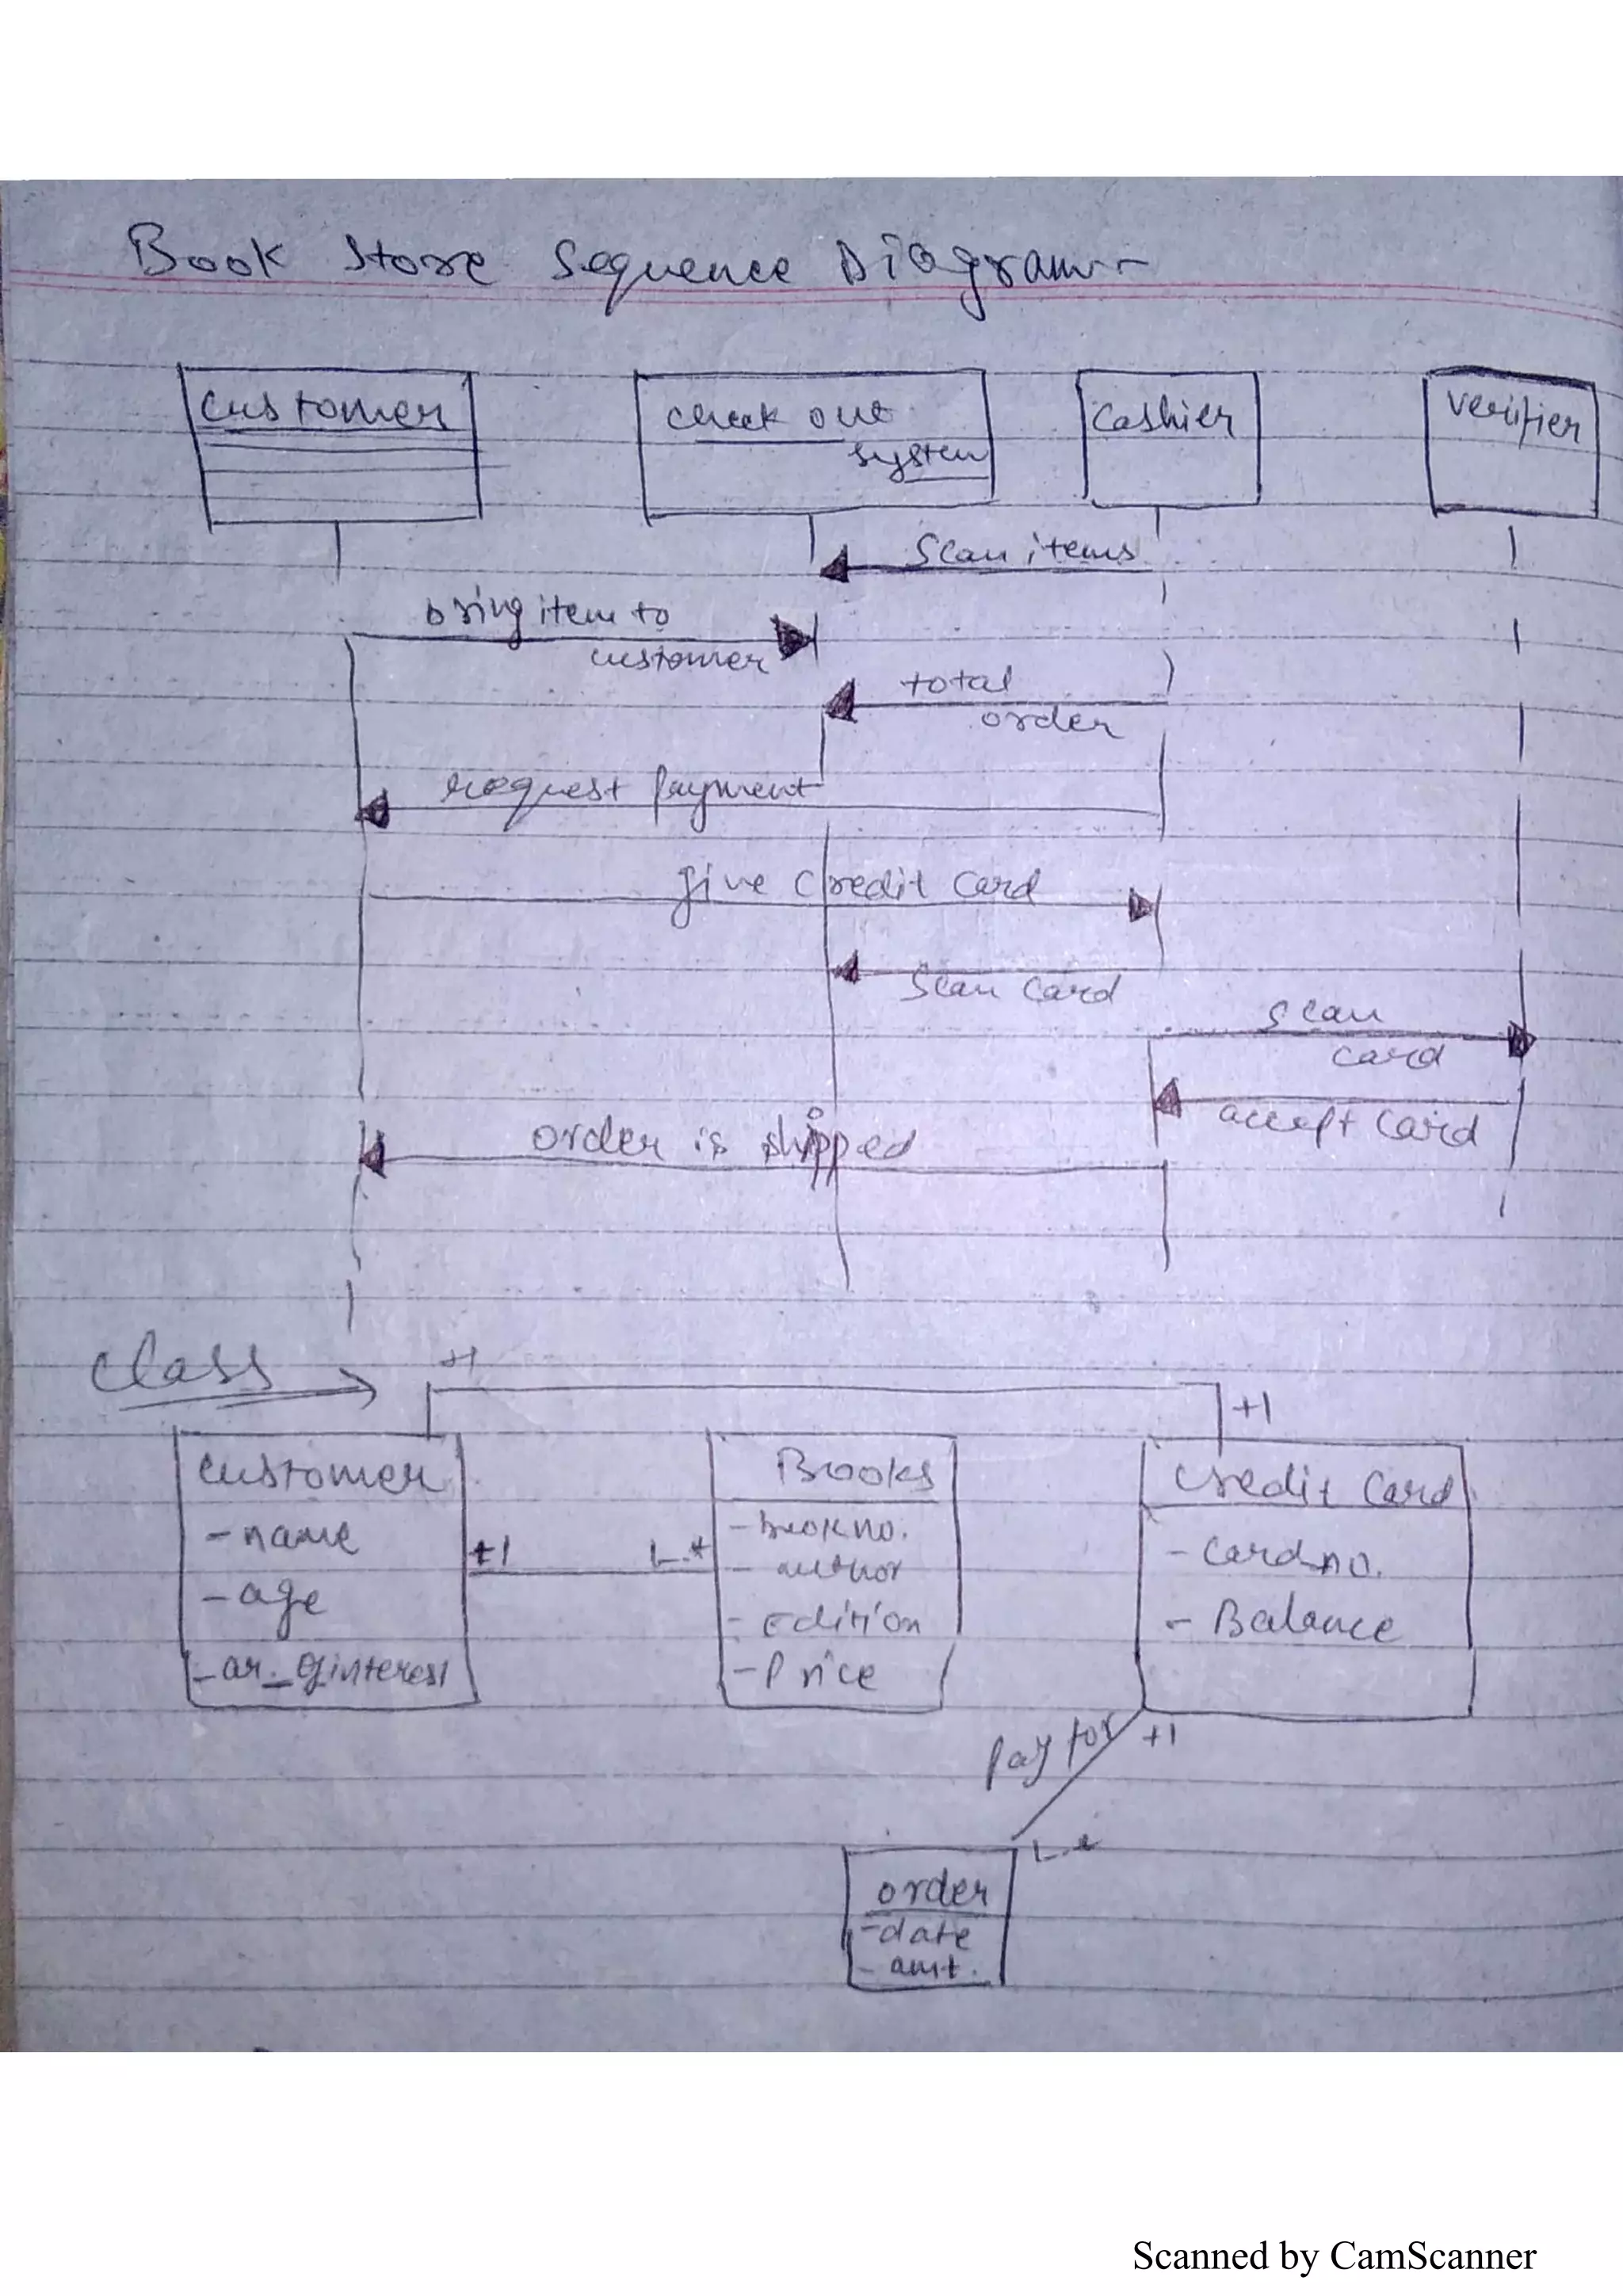 Book Store Sequence Diagram -
customer
check out
system
cashier
verifier
Scan items
bring item to
customer
total
order
request payment
give credit card
Scan card
scan
card
accept card
order is shipped
class
+1
+1
customer
- name
- age
- ar._ofinterest
+1
1..*
Books
- book no.
- author
- Edition
- Price
credit card
- card no.
- Balance
pay for
+1
1..*
order
- date
- amt.
Scanned by CamScanner